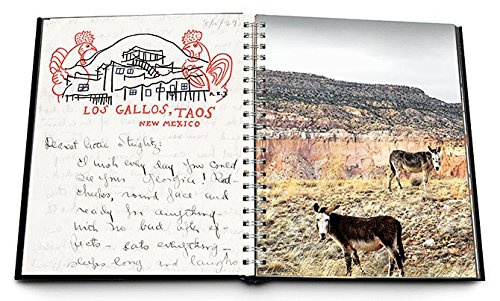 [5/10/29]
R.E.J.
LOS GALLOS, TAOS
NEW MEXICO
Dearest little Stieglitz:
I wish every day you could
see your Georgia! Red
cheeks, round face and
ready for anything —
with no bad after ef-
fects — eats everything —
sleeps long and laughs